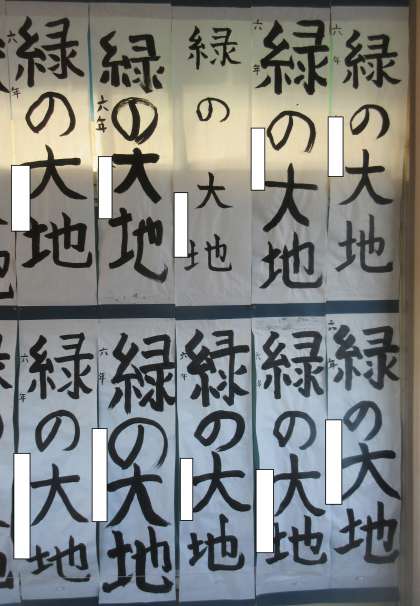 緑の大地
六年
緑の大地
六年
緑の大地
緑の大地
六年
緑の大地
六年
緑の大地
六年
緑の大地
六年
緑の大地
六年
緑の大地
六年
緑の大地
六年